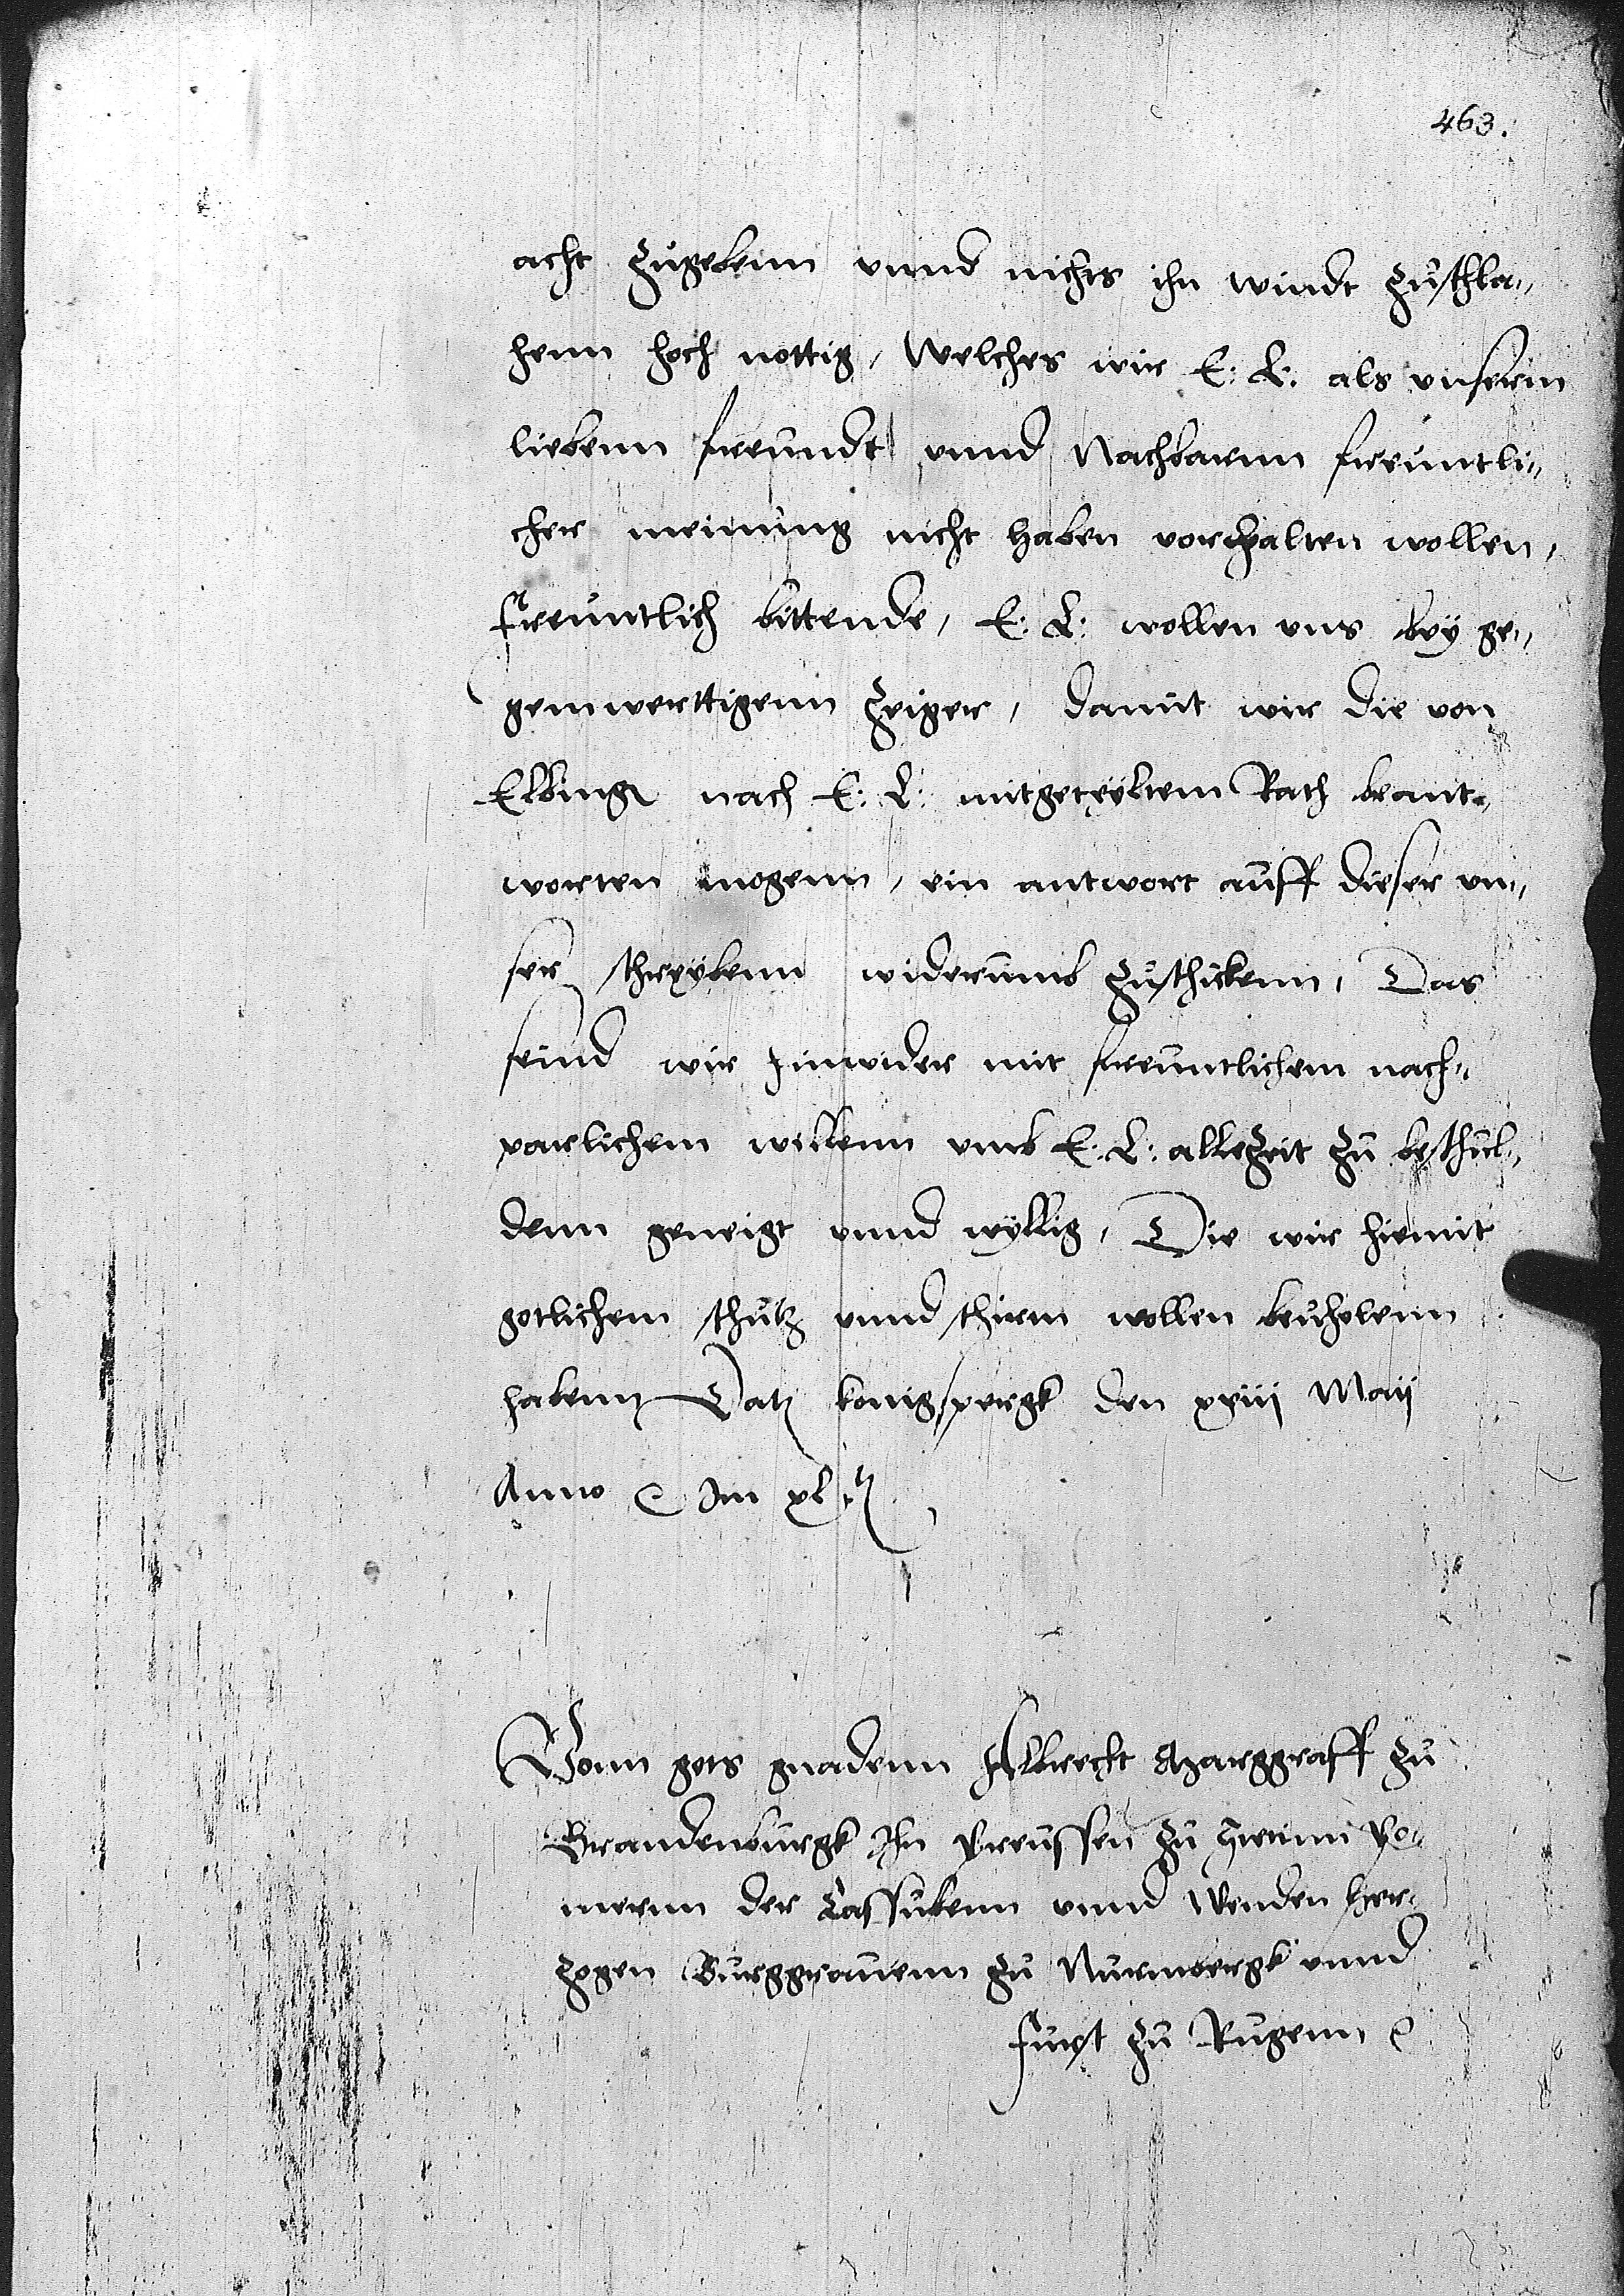 463.
acht zugebenn vnnd nichts ihn windt zuschla„
henn hoch nottig, Welches wir E: L: als vnserm
liebenn freundt vnnd Nachbarnn freuntli„
cher meinung nicht haben vorhalten wollen,
freuntlich bittende, E: L: wollen vns bey ge„
genwerttigenn Zeiger, damit wir die von
Elbing nach E: L: mitgeteyltem Rath beant„
worten mogenn, ein antwort auff dieser vn„
ser schreybenn widerumb zuschickenn, Das
seind wir hinwider mit freuntlichem nach„
parlichem willenn vmb E: L: allezeit zu beschul„
denn geneigt vnnd wyllig, Die wir hiemit
gotlichem schutz vnnd schirm wollen beuholenn
habenn Datum konigspergk den xxiii Maij
Anno Im xl
Vonn gots gnadenn Albrecht Marggraff zu
Brandenburgk Ihn Preussen zu Stetinn Po„
mernn der Cassubenn vnnd Wenden Her„
zogen Burggrauenn zu Nurmbergk vnnd
furst zu Rugenn